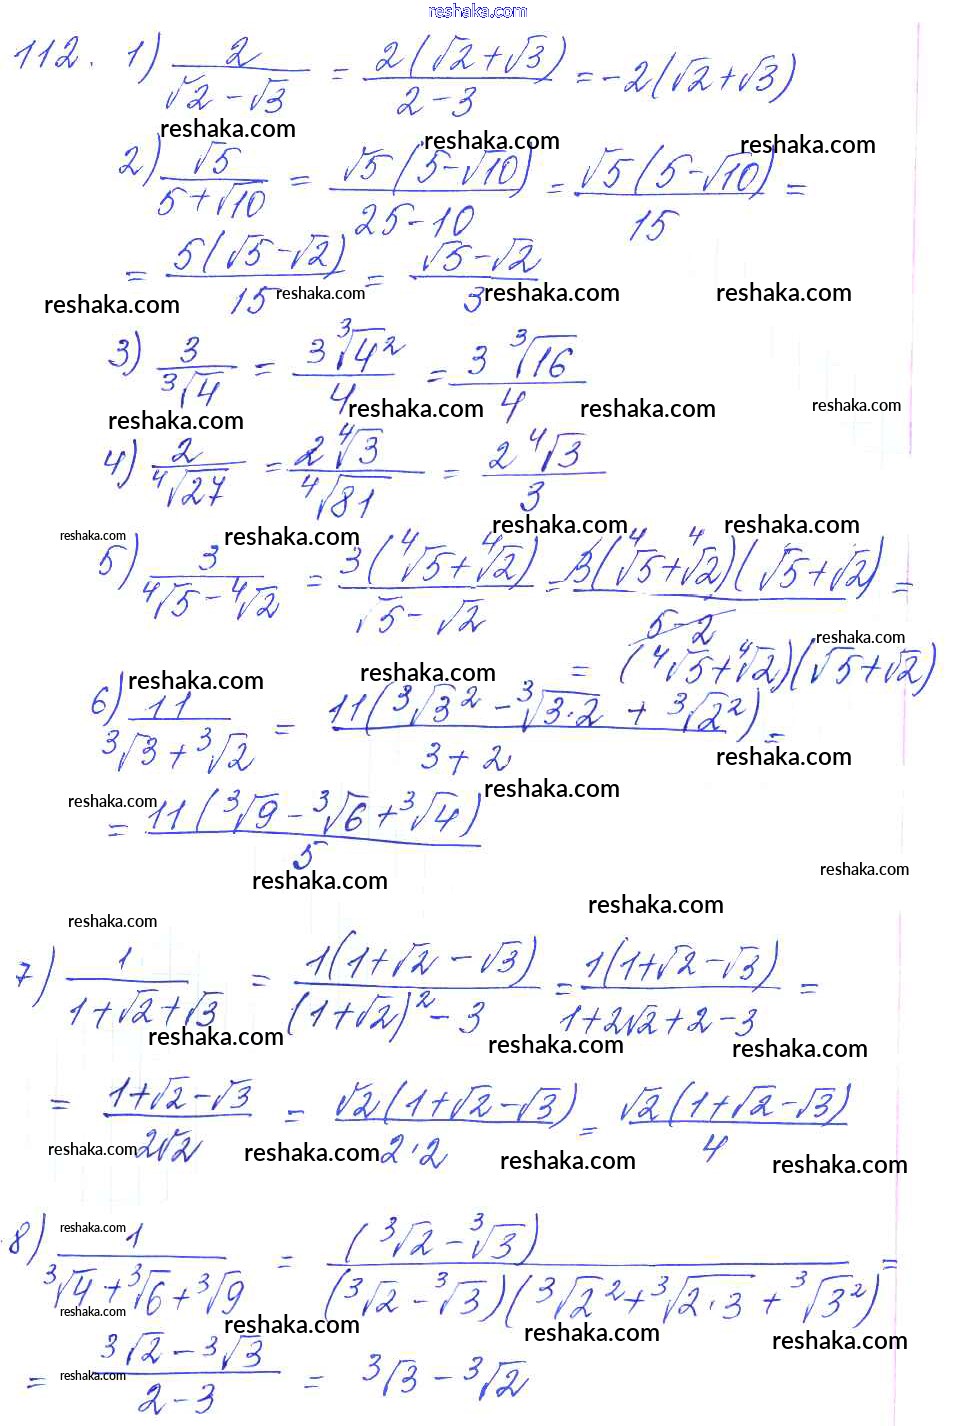 reshaka.com
112. 1) 2/(√2-√3) = 2(√2+√3)/(2-3) = -2(√2+√3)
reshaka.com reshaka.com reshaka.com
2) √5/(5+√10) = √5(5-√10)/(25-10) = √5(5-√10)/15 =
= 5(√5-√2)/15 = (√5-√2)/3
reshaka.com reshaka.com reshaka.com reshaka.com
3) 3/∛4 = 3∛4²/4 = 3∛16/4
reshaka.com reshaka.com reshaka.com reshaka.com
4) 2/∜27 = 2∜3/∜81 = 2∜3/3
reshaka.com reshaka.com reshaka.com reshaka.com
5) 3/(∜5-∜2) = 3(∜5+∜2)/(√5-√2) = 3(∜5+∜2)(√5+√2)/(5-2) =
reshaka.com
= (∜5+∜2)(√5+√2)
reshaka.com reshaka.com
6) 11/(∛3+∛2) = 11(∛3²-∛(3·2)+∛2²)/(3+2) =
reshaka.com
reshaka.com reshaka.com
= 11(∛9-∛6+∛4)/5
reshaka.com reshaka.com
reshaka.com reshaka.com
7) 1/(1+√2+√3) = 1(1+√2-√3)/((1+√2)²-3) = 1(1+√2-√3)/(1+2√2+2-3) =
reshaka.com reshaka.com reshaka.com
= (1+√2-√3)/(2√2) = √2(1+√2-√3)/(2·2) = √2(1+√2-√3)/4
reshaka.com reshaka.com reshaka.com reshaka.com
reshaka.com
8) 1/(∛4+∛6+∛9) = (∛2-∛3)/((∛2-∛3)(∛2²+∛(2·3)+∛3²)) =
reshaka.com reshaka.com reshaka.com reshaka.com
= (∛2-∛3)/(2-3) = ∛3-∛2
reshaka.com